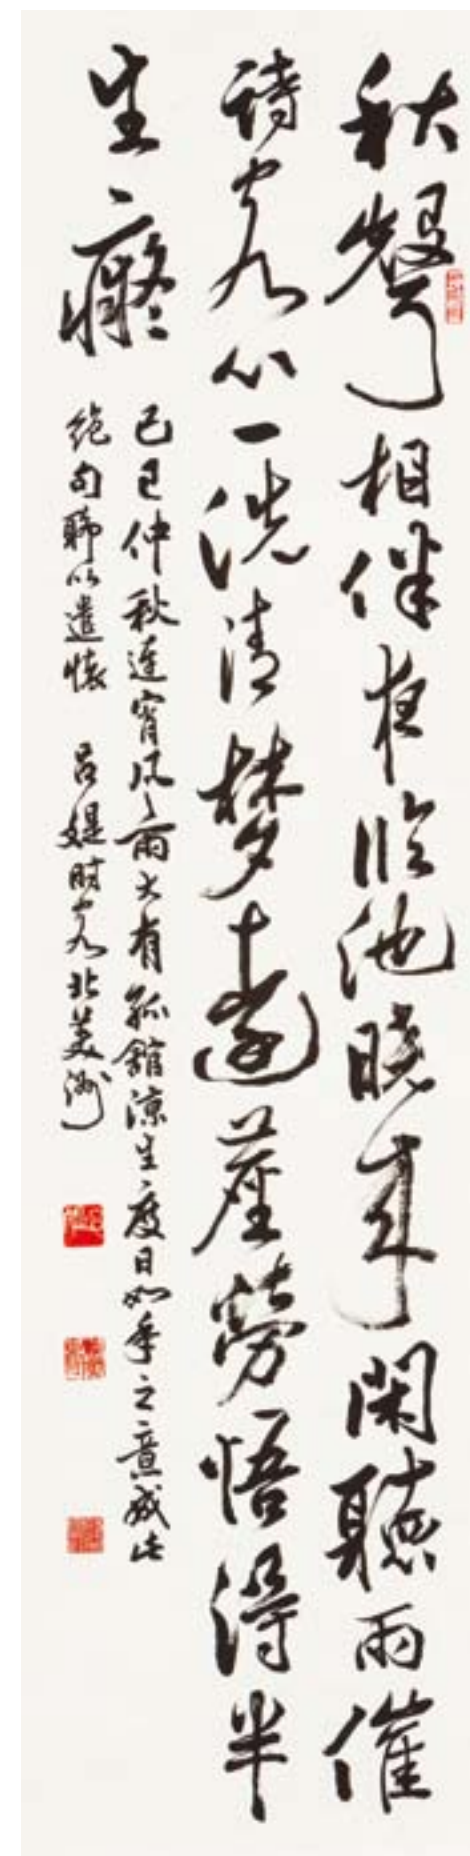 秋聲相伴夜臨池曉來閑聽雨催
詩客心一洗清梦遠塵勞悟得半
生癡
己巳仲秋連宵風雨大有孤館涼生度日如年之意成此
絕句聊以遣懷 呂媞時客北美洲